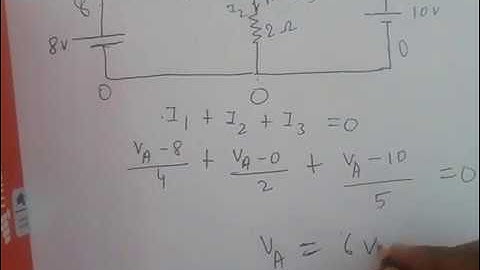 8
I₂
2 Ω
8v
10v
0
0
0
I₁ + I₂ + I₃ = 0
(V_A - 8)/4 + (V_A - 0)/2 + (V_A - 10)/5 = 0
V_A = 6 V